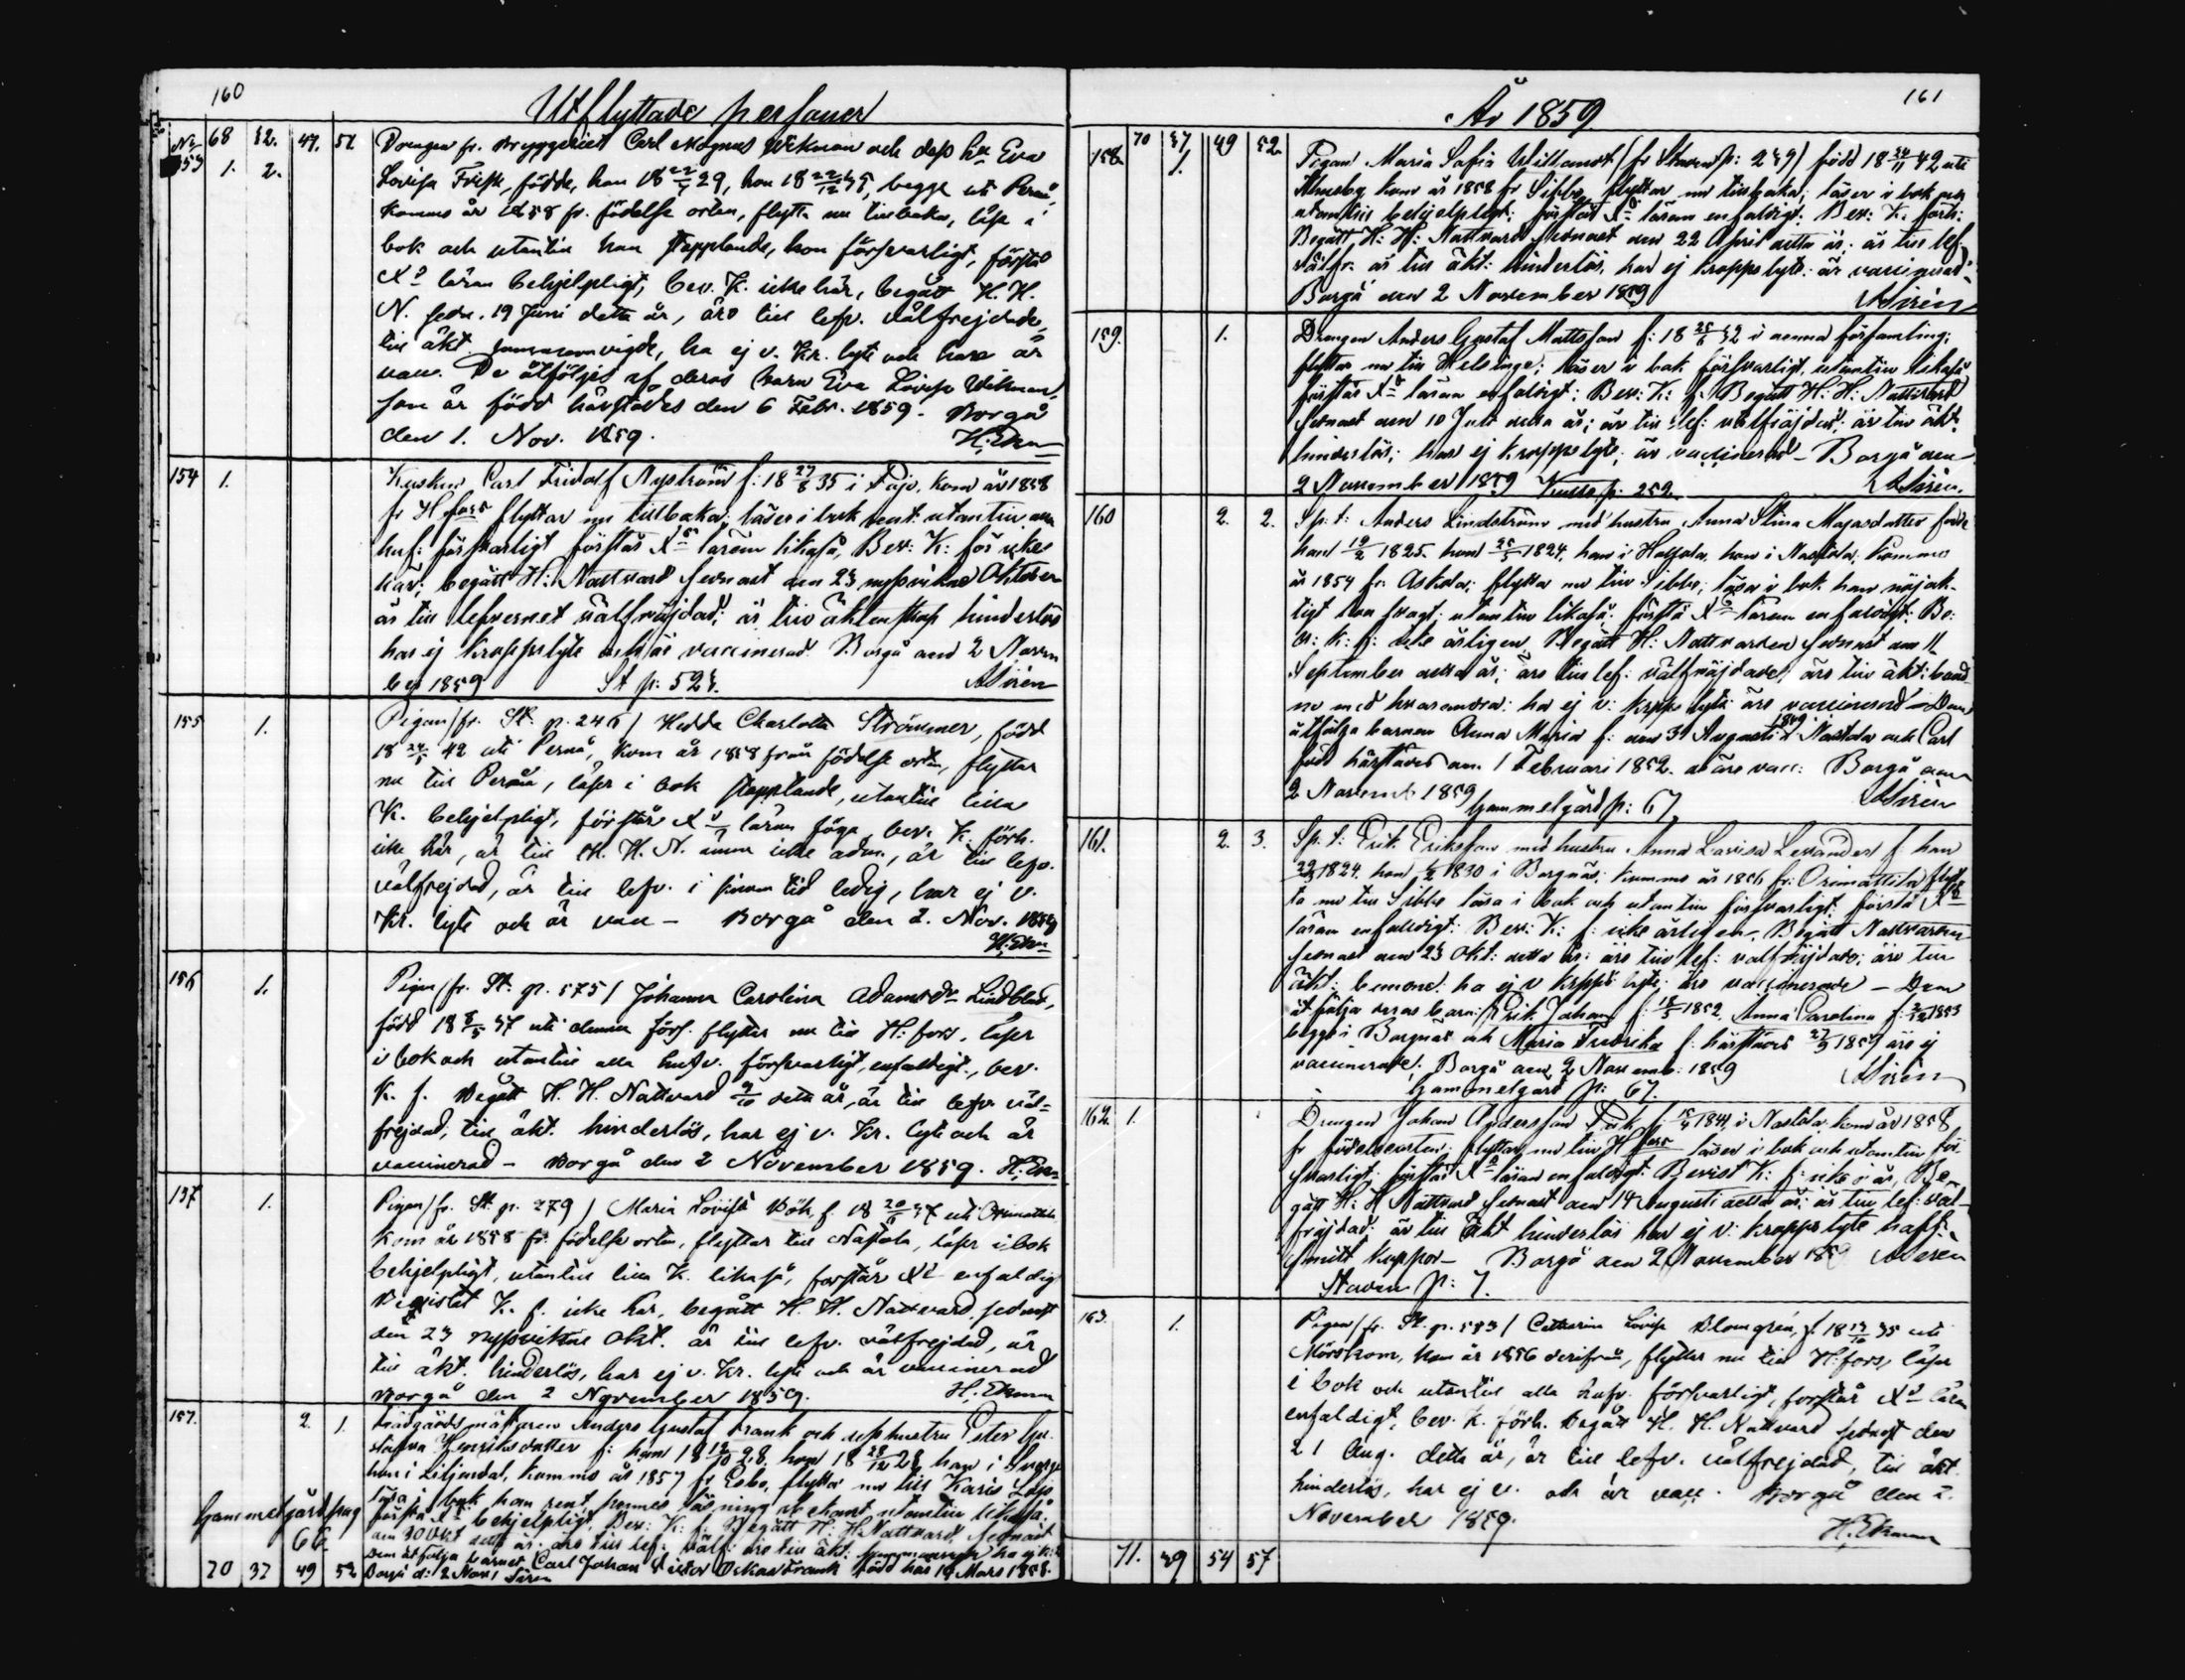 160
Utflyttade personer
No 68 32. 47. 51
153 1. 2.
Drengen fr. Bryggeriet Carl Magnus Wikman och dess hu Eva
Lovisa Frisk, födde, han 18 22/5 29, hon 18 22/12 35, begge uti Perno,
komne år 1858 fr. födelse orten, flytta nu tillbaka, läsa i
bok och utantill han stapplande, hon försvarligt, förstå
Xd läran behjelpligt, bev. K. icke här, begått H. H.
N. sedn. 19 Juni detta år, äro till lefv. välfrejdade,
till äkt sammanvigde, ha ej v. Kr. lyte och hare är
vacc. De åtföljes af deras barn Eva Lovisa Wikman,
som är född härstädes den 6 Febr. 1859. Borgå
den 1. Nov. 1859. H. Ekman
154 1.
Kusken Carl Fridolf Nyström f: 18 27/8 35 i Pojo, kom år 1858
fr Hfors flyttar nu tillbaka; läser i bok rent utantill alla
huf: försvarligt förstår Xd läran likaså, Bev: K: för icke
här; begått H: Nattvard sednast den 23 nyssvikne Oktober
är till lefvernet välfräjdad; är till äktenskap hinderlös
har ej kroppslyte och är vaccinerad. Borgå den 2 Novem
ber 1859 St p: 525. ASirén
155 1.
Pigan/fr. St. p. 246/ Hedda Charlotta Strömmer, född
18 24/5 42 uti Perno, kom år 1858 från födelse orten, flyttar
nu till Perno, läser i bok stapplande, utantill lilla
K. behjelpligt, förstår Xd läran föga, bev. K. förh.
icke här, är till H. H. N. ännu icke adm., är till lefv.
välfrejdad, är till lefv. i sinom tid ledig, har ej v.
Kr. lyte och är vacc - Borgå den 2. Nov. 1859
H. Ekman
156 1.
Pigan/fr. St. p. 575/ Johanna Carolina Adamsdr Lindblad,
född 18 8/5 37 uti denna förs. flyttar nu till H:fors, läser
i bok och utantill alla hufv. försvarligt, enfaldigt, bev.
K. f. Begått H. H. Nattvard 9/10 detta år, är till lefv. väl=
frejdad, till äkt. hinderlös, har ej v. Kr. lyte och är
vaccinerad - Borgå den 2 November 1859. H. Ekman
157 1.
Pigan/fr. St. p. 279/ Maria Lovisa Böh, f. 18 20/11 37 uti Orimattila
kom år 1858 fr. födelse orten, flyttar till Nastola, läser i bok
behjelpligt, utantill lilla K. likaså, förstår Xd enfaldig
Bevistat K. f. icke här, begått H. H. Nattvard sednast
den 23 nyssvikne Okt. är till lefv. välfrejdad, är
till äkt. hinderlös, har ej v. Kr. lyte och är vaccinerad
Borgå den 2 November 1859. H. Ekman
157. 2. 1.
Trädgårdsmästaren Anders Gustaf Frank och dess hustru Ester Gu
stafva Henriksdotter f: han 18 19/10 28, hon 18 28/12 28 han i Sverge
hon i Liljendal, komne år 1857 fr Esbo, flytta nu till Karis Lojo
läsa i bok han rent, hennes läsning obekant, utantill likaså.
förstå Xd behjelpligt, Bev: K: f: Begått H: H: Nattvard sednast
den 30 Okt detta år: äro till lef: välf: äro till äkt: sammanvigde ha ej v:
Dem åtfölja barnet Carl Johan Victor Oskar Frank född här 19 Mars 1858.
Borgå d: 2 Nov: Sirén
Gammelgård pag
66.
70 37 49 52
År 1859.
161
70 37 49 52
158. 1.
Pigan Maria Sofia Willandt (fr Staven p: 259) född 18 24/11 42 uti
Thusby kom år 1858 fr Sibbo, flyttar nu tillbaka; läser i bok och
utantill behjelpligt; förstår Xd läran enfaldigt. Bev: K: förh:
Begått H: H: Nattvard sednast den 22 April detta år; är till lef:
välfr: är till äkt: hinderlös, har ej kroppslyte: är vaccinerad:
Borgå den 2 November 1859 ASirén
159. 1.
Drengen Anders Gustaf Mattsson f: 18 25/6 32 i denna församling;
flyttar nu till Helsinge; läser i bok försvarligt, utantill likaså
förstår Xd läran enfaldigt: Bev: K: f: Begått H: H: Nattvard
sednast den 10 Juli detta år; är till lef: välfräjdad; är till äkt:
hinderlös; har ej kroppslyte; är vaccinerad - Borgå den
2 November 1859 Kulls p: 252. ASirén.
160 2. 2.
Sp: t: Anders Lindström med hustru Anna Stina Majasdotter född
han 19/2 1825. hon 25/5 1824, han i Hollola, hon i Nastola; komne
år 1854 fr: Askola; flytta nu till Sibbo; läsa i bok han nöjak-
tigt hon svagt; utantill likaså; förstå Xd läran enfaldigt: Be:
v: K: f: icke årligen. Begått H: Nattvarden sednast den 11
September detta år; äro till lef: välfräjdade; äro till äkt: band
ne med hvarandra: ha ej v: kropps lyte: äro vaccinerad - Dem
åtfölja barnen Anna Maria f: den 31 Augusti 1849 i Nastola och Carl
född härstädes den 1 Februari 1852. ej äro vacc: Borgå den
2 Novemb 1859 Gammelgård p: 67 ASirén
161. 2. 3.
Sp. t: Erik Eriksson med hustru Anna Lovisa Levander f han
29/3 1824. hon 1/2 1830 i Borgnäs; komne år 1856 fr: Orimattila flyt
ta nu till Sibbo läsa i bok och utantill försvarligt; förstå Xd
läran enfaldigt: Bev: K: f: icke årligen. Begått Nattvarden
sednast den 23 Okt: detta år: äro till lef: välfräjdade; äro till
äkt: bundne: ha ej v kropps lyte; äro vaccinerade - Dem
åtfölja deras barn: Erik Johan f: 18/5 1852 Anna Carolina f: 2/12 1853
begge i Borgnäs och Maria Fredrika f: härstädes 27/9 1857 äro ej
vaccinerade; Borgå den 2 Novemb: 1859 ASirén
Gammelgård p: 67.
162. 1.
Drengen Johan Andersson Pick f: 15/4 1841, i Nastola kom år 1858
fr födelseorten; flyttar nu till H fors läser i bok och utantill för
svarligt, förstår Xd läran enfaldigt: Bevist K: f: icke i år, Be-
gått H: H Nattvard sednast den 14 Augusti detta år; är till lef: väl-
fräjdad; är till äkt hinderlös har ej v: kroppslyte haft
smått koppor - Borgå den 2 November 1859 ASirén
Staven p: 7.
163. 1.
Pigan/fr. St. p. 593/ Catharina Lovisa Blomgrén, f. 18 13/10 35 uti
Mörskom, kom år 1856 derifrån, flyttar nu till H:fors, läser
i bok och utantill alla hufv. försvarligt, förstår Xd läran
enfaldigt, bev. K. förh. Begått H. H. Nattvard sednast den
21 Aug. detta år, är till lefv. välfrejdad, till äkt.
hinderlös, har ej v. och är vacc. Borgå den 2.
November 1859. H. Ekman
71. 39 54 57